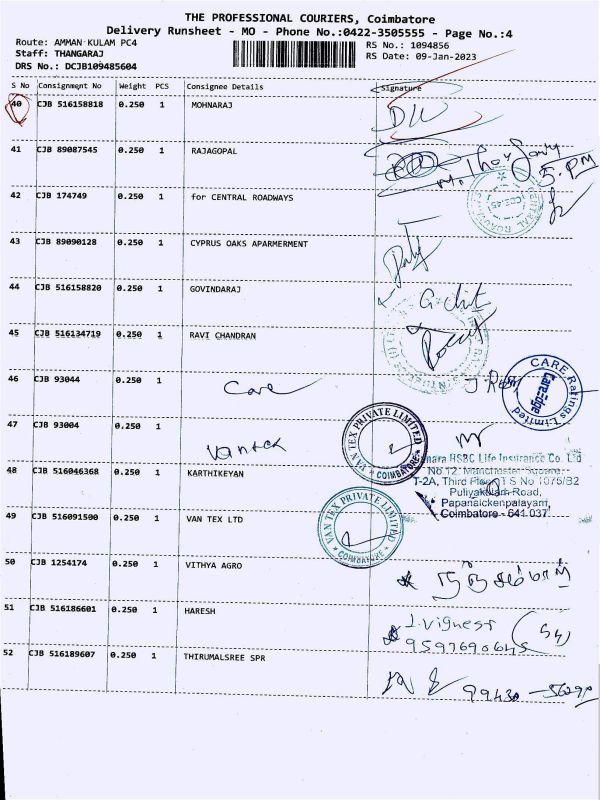 THE PROFESSIONAL COURIERS, Coimbatore
Delivery Runsheet - MO - Phone No.:0422-3505555 - Page No.:4
Route: AMMAN KULAM PC4
RS No.: 1094856
Staff: THANGARAJ
RS Date: 09-Jan-2023
DRS No.: DCJB109485604
S No Consignment No Weight PCS Consignee Details Signature
40 CJB 516158818 0.250 1 MOHNARAJ
41 CJB 89087545 0.250 1 RAJAGOPAL
5. PM
42 CJB 174749 0.250 1 for CENTRAL ROADWAYS
43 CJB 89090128 0.250 1 CYPRUS OAKS APARMERMENT
44 CJB 516158820 0.250 1 GOVINDARAJ
45 CJB 516134719 0.250 1 RAVI CHANDRAN
46 CJB 93044 0.250 1 Care
CARE Ratings Limited
CareEdge
47 CJB 93004 0.250 1 Vantex
VAN TEX PRIVATE LIMITED
COIMBATORE
48 CJB 516046368 0.250 1 KARTHIKEYAN
HSBC Life Insurance Co. Ltd
No.12, Manchester Square,
T-2A, Third Floor, T S No 1075/B2
Puliyakulam Road,
Papanaickenpalayam,
Coimbatore - 641 037
49 CJB 516091500 0.250 1 VAN TEX LTD
VAN TEX PRIVATE LIMITED
COIMBATORE
50 CJB 1254174 0.250 1 VITHYA AGRO
51 CJB 516186601 0.250 1 HARESH
J. Vignesh
9597690645
52 CJB 516189607 0.250 1 THIRUMALSREE SPR